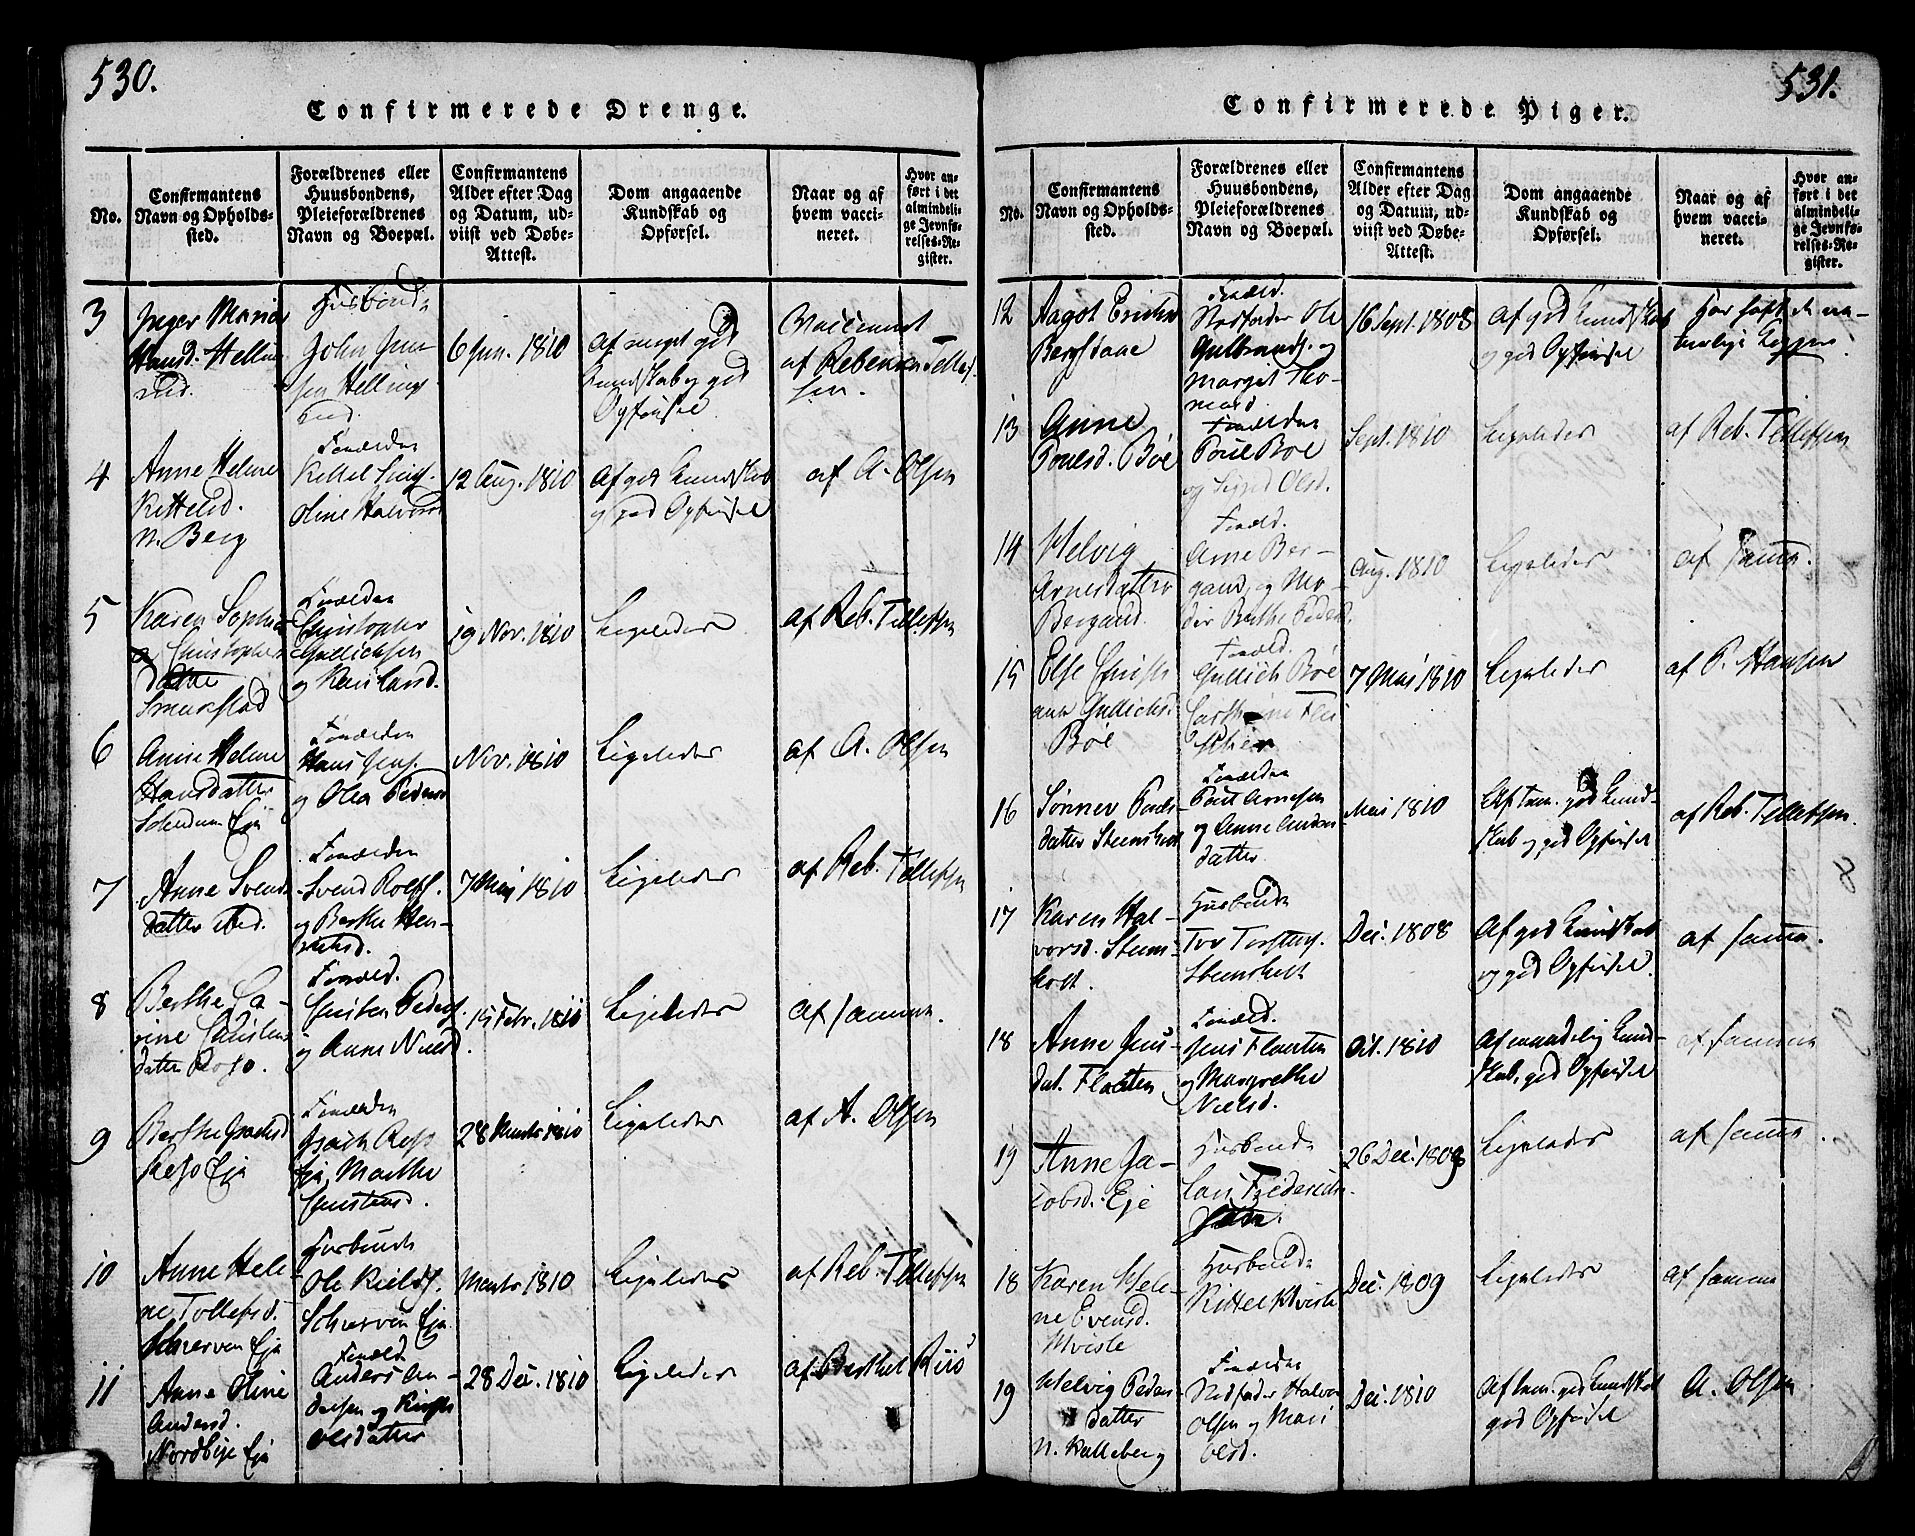 530.
Confirmerede Drenge.
No.
Confirmantens Navn og Opholds-sted.
Forældrenes eller Huusbondens, Pleieforældrenes Navn og Boepæl.
Confirmantens Alder efter Dag og Datum, ud-viist ved Døbe-Attest.
Dom angaaende Kundskab og Opførsel.
Naar og af hvem vacci-neret.
Hvor an-ført i det almindeli-ge Jevnfø-relses-Re-gister.
3
Inger Maria
Husbond
John Jen-
sen
6 Jun. 1810
af meget god
Kundskab og god
Opførsel
Vaccineret
af Rebecca Tellef-
sen.
4
Anne Helene
Kittelsd.
N. Berg
Forældre
Kittel
Oline Halvorsd
12 Aug. 1810
Af god Kundskab
og god Opførsel
af A. Olsen
5
Karen Sophia
Christophers
datter
Smukstad
Forældre
Christopher
Gullichsen
og Kari
19 Nov. 1810
Ligeledes
af Reb. Tellefsen
6
Anne Helene
Hansdatter
Eje
Forældre
Hans Jens.
og Olea Peders
Nov. 1810
Ligeledes
af A. Olsen
7
Anne Svends
datter ibid.
Forældre
Svend Rolfs.
og Berthe Hen-
7 Mai 1810
Ligeledes
af Reb. Tellefsen
8
Berthe Ca-
rine Christens
datter
Foræld.
Christen Peders.
og Anne Nielsd.
15 Febr. 1810
Ligeledes
af samme
9
Berthe Isachsd
Eje
Forældre
Isach
Eje, Marthe
Christensd.
28 Marts 1810
Ligeledes
af A. Olsen
10
Anne Hele-
ne Tollefsd.
Eje
Husbond
Ole Kields.
Eje
Marts 1810
Ligeledes
af Reb. Tellefsen
11
Anne Oline
Andersd.
Nordbye Eje
Foræld
Anders An-
dersen og
Olsdatter
28 Dec. 1810
Ligeledes
af Berthel Riis
531.
Confirmerede Piger.
No.
Confirmantens Navn og Opholds-sted.
Forældrenes eller Huusbondens, Pleieforældrenes Navn og Boepæl.
Confirmantens Alder efter Dag og Datum, ud-viist ved Døbe-Attest.
Dom angaaende Kundskab og Opførsel.
Naar og af hvem vacci-neret.
Hvor an-ført i det almindeli-ge Jevnfø-relses-Re-gister.
12
Aagot
Foræld.
Stedfader Ole
Gulbrands. og
Margit Tho-
masd.
16 Sept. 1808
af god Kundskab
og god Opførsel
Har haft de na-
turlige Kopper
13
Anne
Poulsd. Böe
Forældre
Poul Böe
og Siged Olsd.
Sept. 1810
Ligeledes
af Reb. Tellefsen
14
Helvig
Arnesdatter
Bergand
Foræld.
Arne Ber-
gand, og Mo-
der Berthe Peders
Aug. 1810
Ligeledes
af samme.
15
Else Christi-
ane Gullichsd
Böe
Foræld.
Gullich Böe
7 Mai 1810
Ligeledes
af P. Hansen
16
Sönnev Pouls
datter Steensholt
Forældre
Poul Arnesen
og Anne Anders
datter
Mai 1810
Af tem. god Kund-
skab og god Opførsel
af Reb. Tellefsen.
17
Karen Hal-
vorsd. Steens-
holt.
Husbond
Tov Torstens.
Steensholt
Dec. 1808
Af god Kundskab
og god Opførsel.
af samme.
18
Anne Jens-
dat. Flaaten
Foræld.
Jens Flaaten
og Margrethe
Nielsd.
Oct. 1810
Af maadelig Kund-
skab, god Opførsel
af samme
19
Anne Ja-
cobsd. Eje
Husbond
Lars Frederichs.
26 Dec. 1809
Ligeledes
af samme.
18
Karen Hele-
ne Evensd.
Hvisle
Husbond
Kittel Hvisle
Dec. 1809
Ligeledes
af samme
19
Helvig Peders
datter
N. Kalleberg
Forældre
Stedfader Halvor
Olsen og Mari
Olsd.
Dec. 1810
Af tem. god Kundskab
god Opførsel
A. Olsen